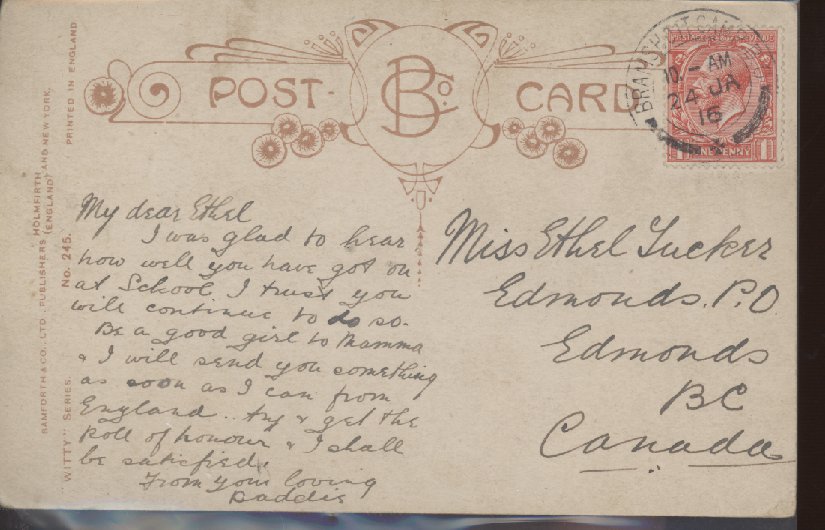 POST CARD
BC Co.
BRAMSHOTT CAMP
10. - AM
24 JA
16
POSTAGE REVENUE
1 ONE PENNY 1
PRINTED IN ENGLAND
BAMFORTH & CO., LTD., PUBLISHERS, HOLMFIRTH (ENGLAND) AND NEW YORK.
"WITTY" SERIES. No. 245.
My dear Ethel
I was glad to hear
how well you have got on
at School. I trust you
will continue to do so.
Be a good girl to Mamma
& I will send you something
as soon as I can from
England.. try & get the
Roll of honour & I shall
be satisfied.
From your loving
Daddie
Miss Ethel Tucker
Edmonds. P.O
Edmonds
BC
Canada